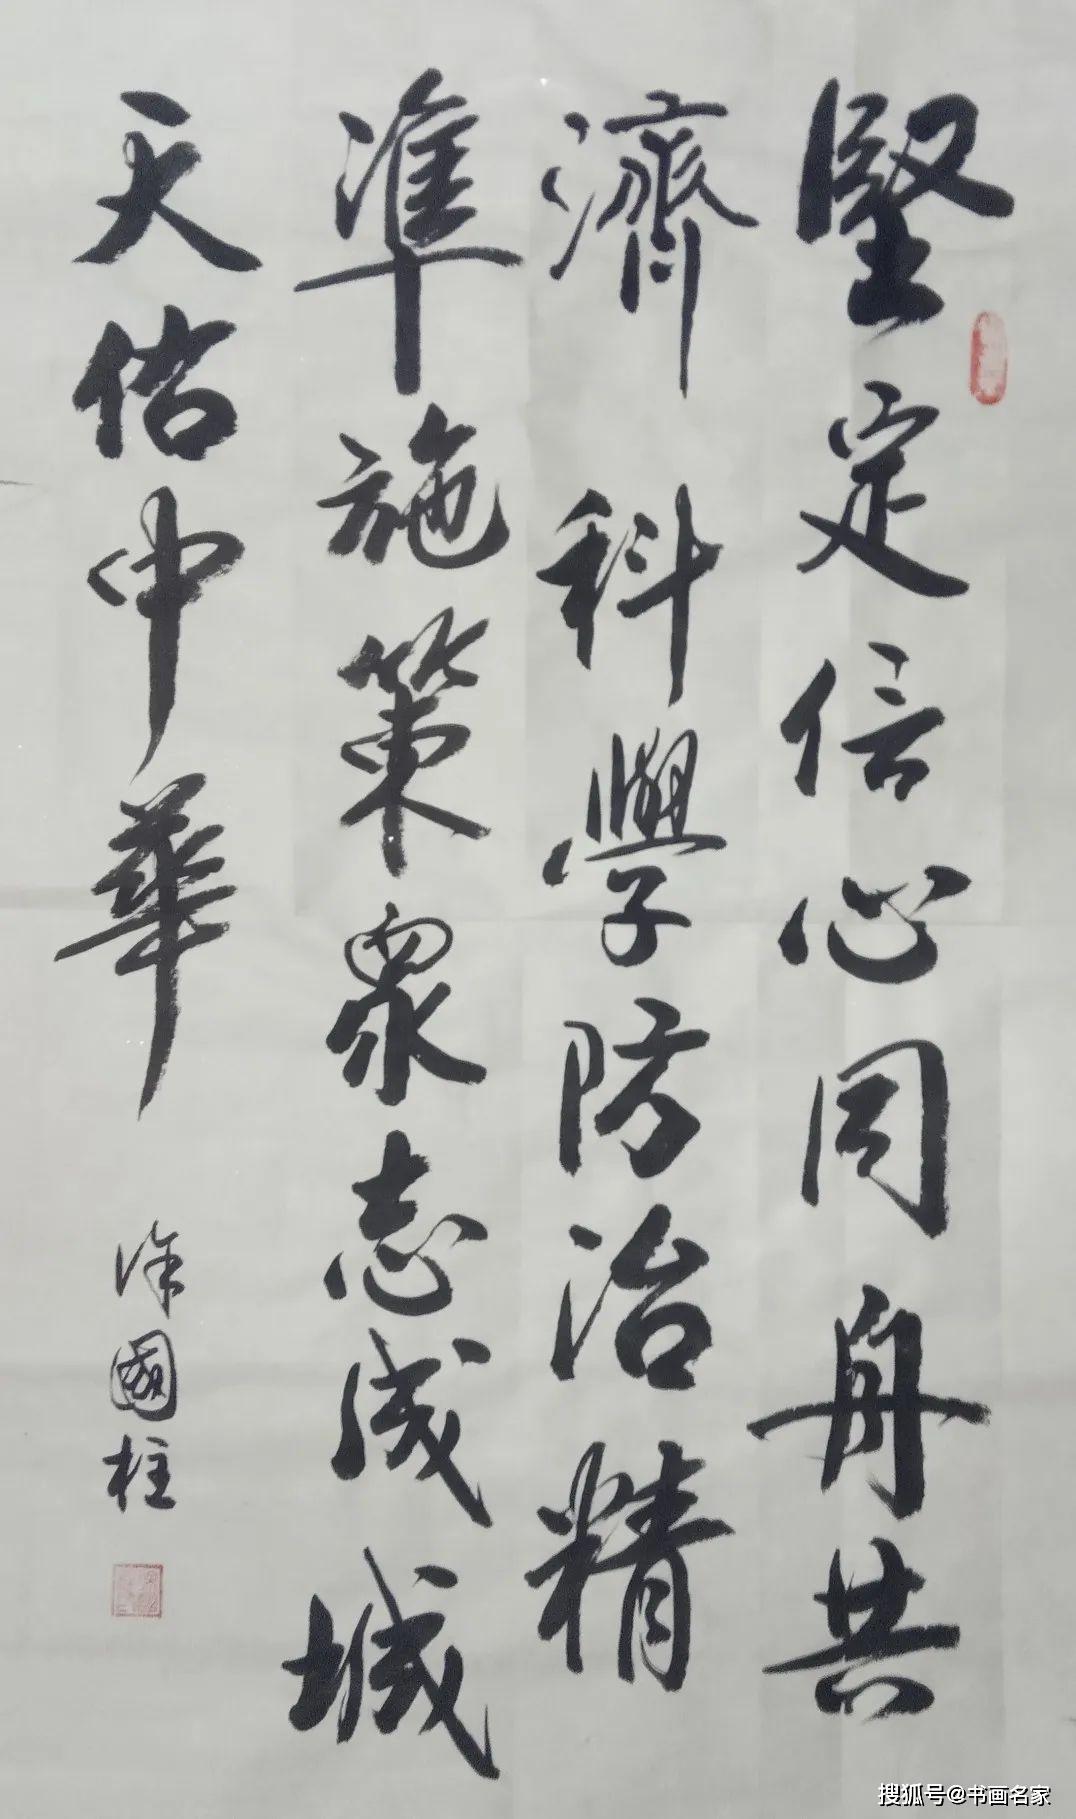 堅定信心同舟共
濟科學防治精
準施策眾志成城
天佑中華
徐國柱
搜狐号@书画名家